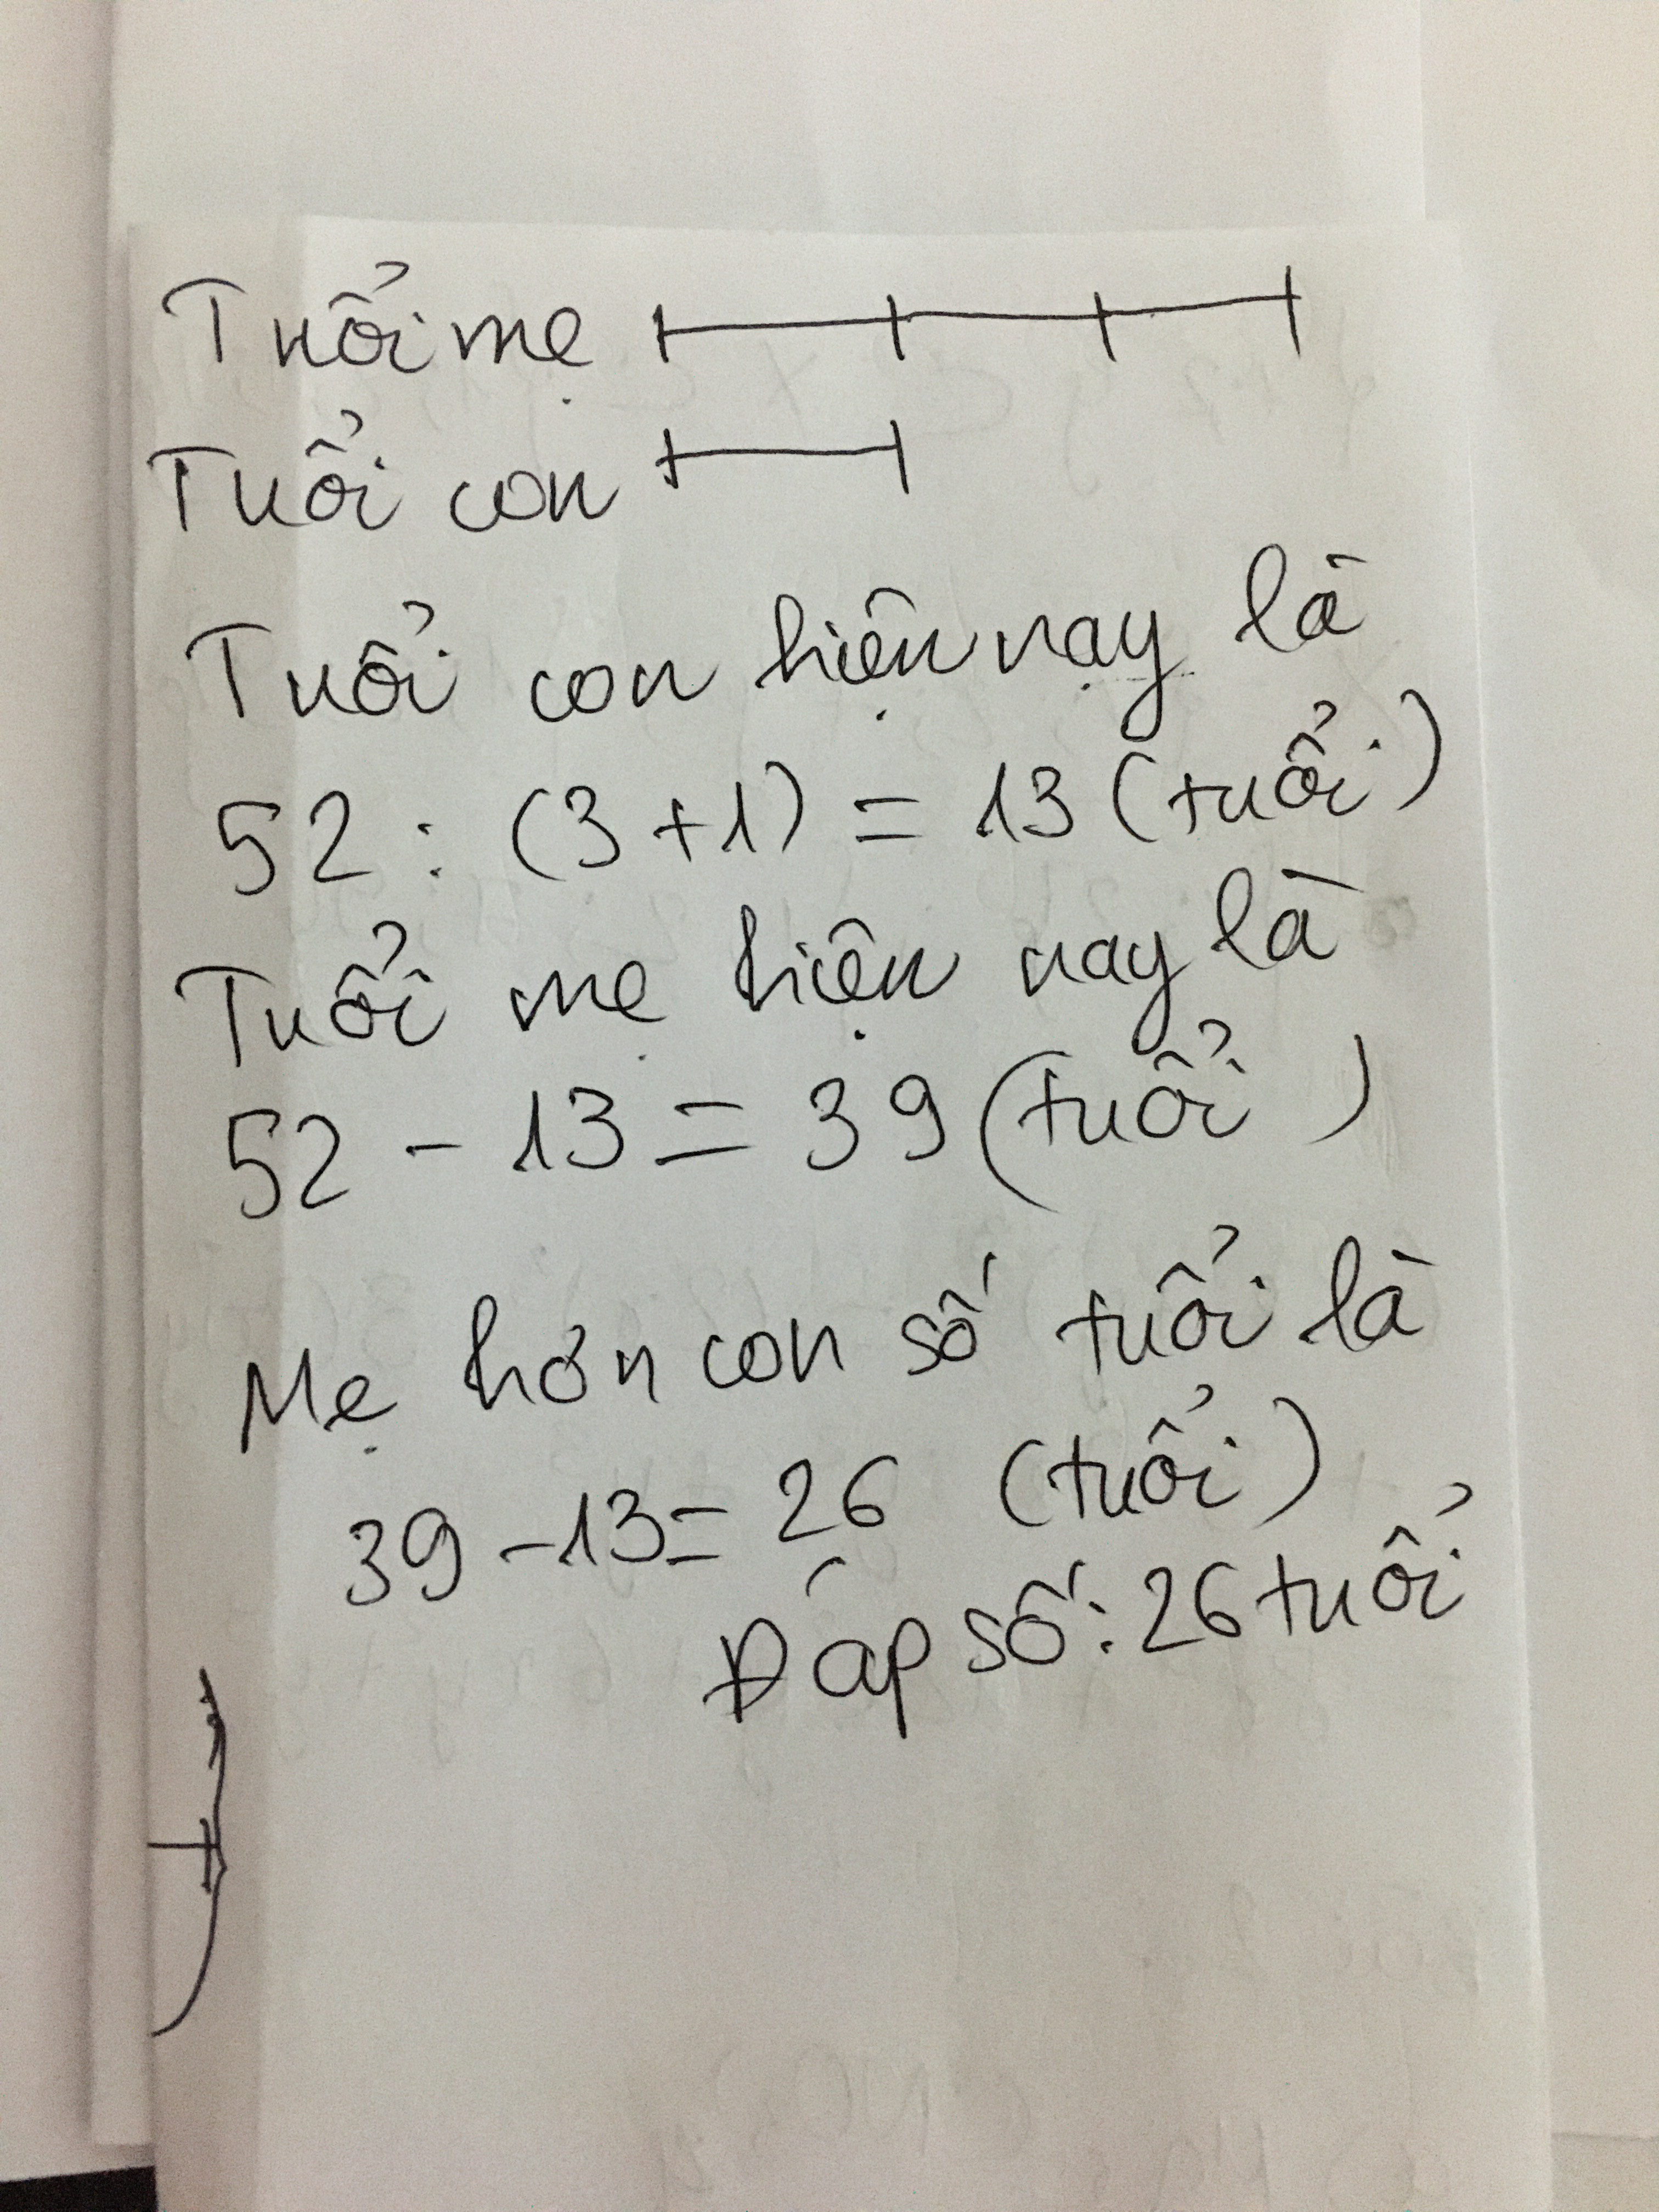 Tuổi mẹ
Tuổi con
Tuổi con hiện nạy là
52 : (3+1) = 13 (tuổi)
Tuổi mẹ hiện nay là
52 - 13 = 39 (tuổi)
Mẹ hơn con số tuổi là
39 - 13 = 26 (tuổi)
Đáp số: 26 tuổi